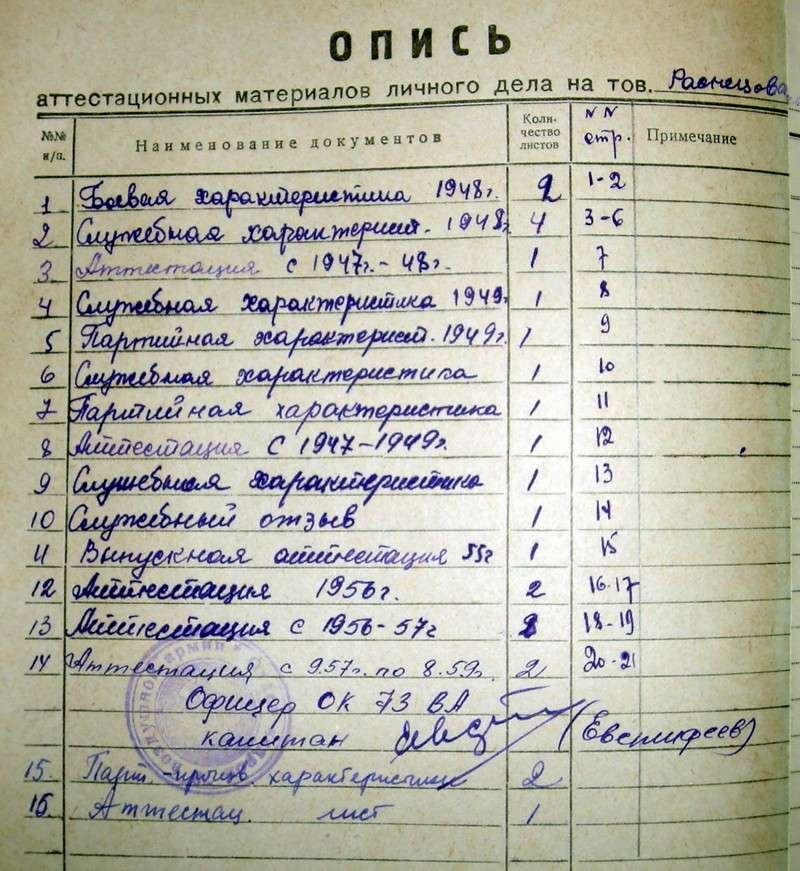 ОПИСЬ
аттестационных материалов личного дела на тов. Распецова
№№ п/п. Наименование документов Коли-чество листов NN стр. Примечание
1 Боевая характеристика 1948г. 2 1-2
2 Служебная характерист. 1948г 4 3-6
3 Аттестация с 1947г.-48г. 1 7
4 Служебная характеристика 1949г 1 8
5 Партийная характерист. 1949г. 1 9
6 Служебная характеристика 1 10
7 Партийная характеристика 1 11
8 Аттестация с 1947-1949г. 1 12
9 Служебная характеристика 1 13
10 Служебный отзыв 1 14
11 Выпускная аттестация 55г 1 15
12 Аттестация 1956г. 2 16-17
13 Аттестация с 1956-57г 2 18-19
14 Аттестация с 9.57г. по 8.59г. 2 20-21
Офицер ОК 73 ВА
капитан (Евстифеев)
15. Парт. характеристика 2
16. Аттестац. лист 1